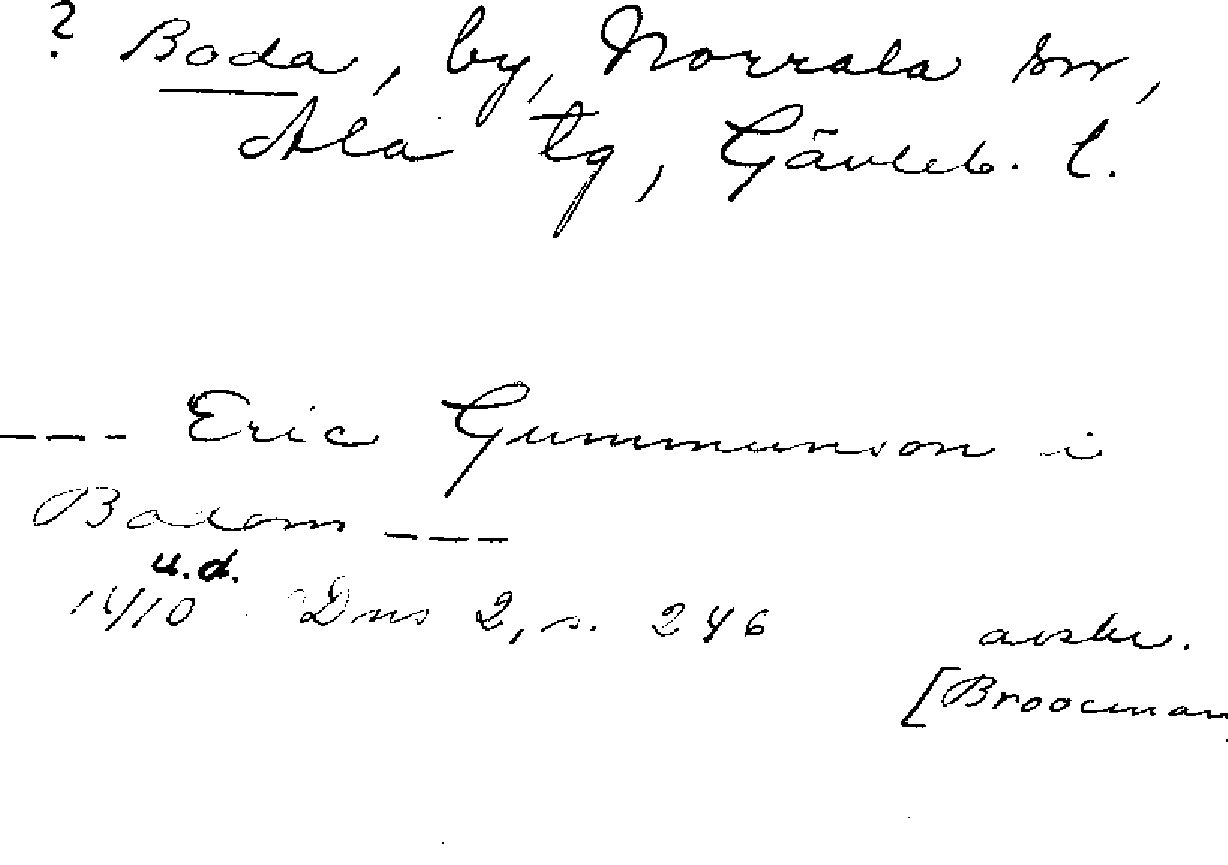 ? Boda, by, Norrala sn,
Ala tg, Gävleb. l.
--- Eric Gummunson i
Badom ---
u.d.
14/10 Dms 2, s. 246
avskr.
[Brocman